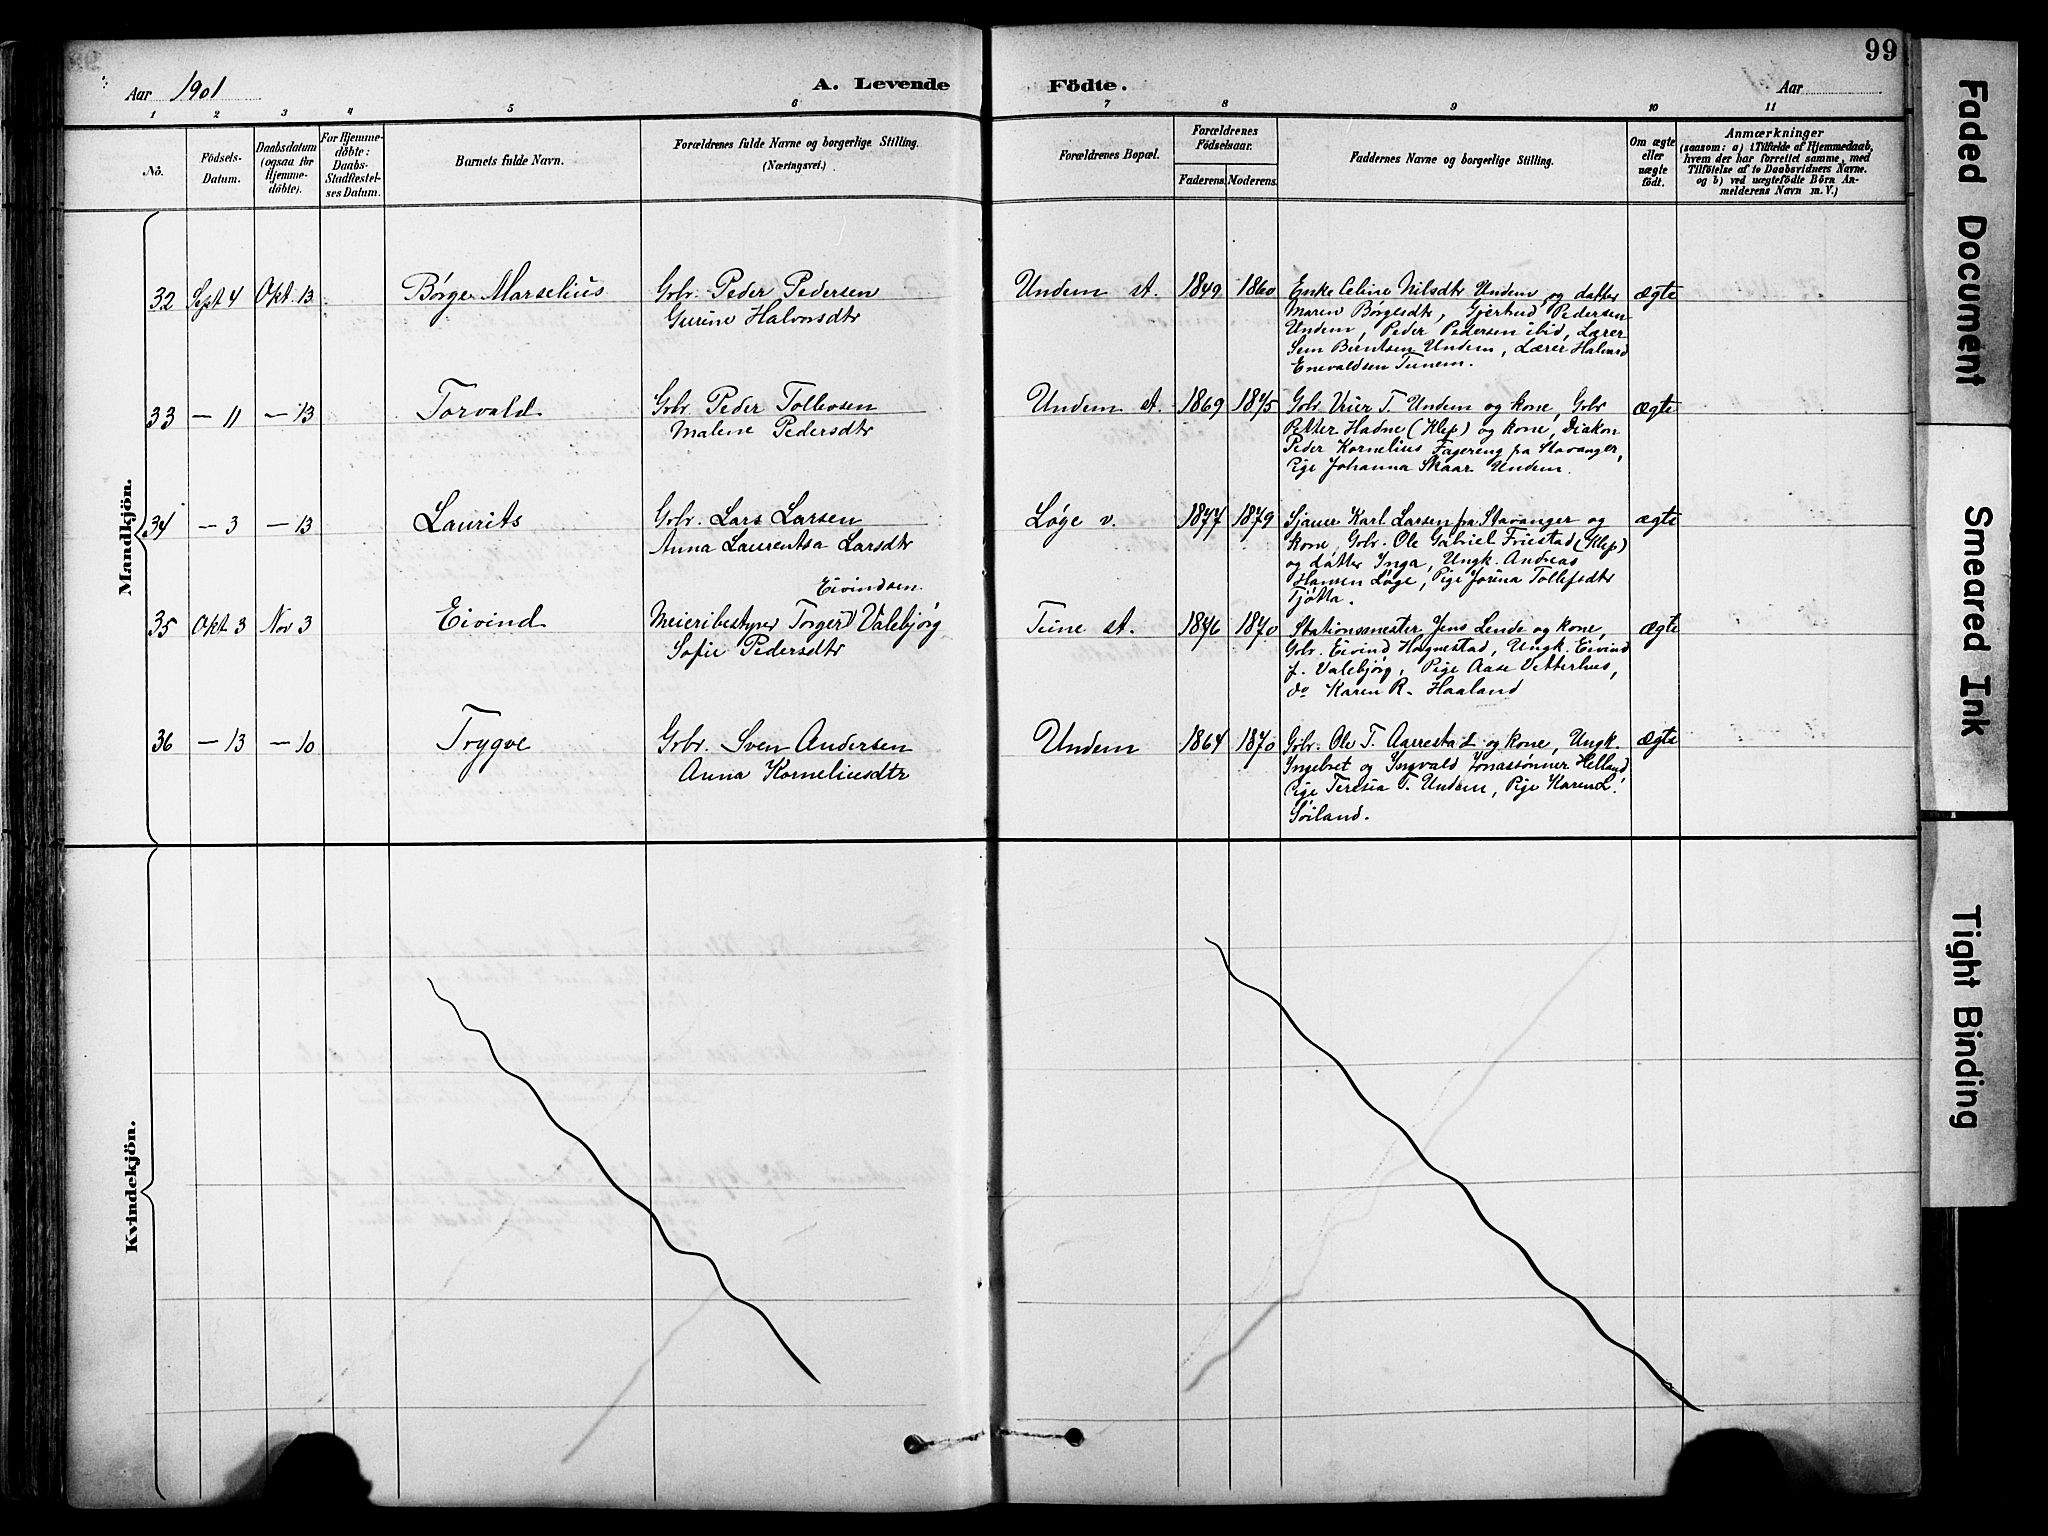 99
Aar 1901
A. Levende Födte.
Aar
1 2 3 4 5 6 7 8 9 10 11
No.
Födsels-
Datum.
Daabsdatum
(ogsaa for
Hjemme-
döbte).
For Hjemme-
döbte:
Daabs-
Stadfæstel-
ses Datum.
Barnets fulde Navn.
Forældrenes fulde Navne og borgerlige Stilling.
(Næringsvei.)
Forældrenes Bopæl.
Forældrenes
Födselsaar.
Faderens. Moderens.
Faddernes Navne og borgerlige Stilling.
Om ægte
eller
uægte
födt.
Anmærkninger
(saasom: a) i Tilfælde af Hjemmedaab,
hvem der har forrettet samme, med
Tilföielse af to Daabsvidners Navne.
og b) ved uægtefödte Börn An-
melderens Navn m. V.)
Mandkjön.
32 Sept 4 Okt. 13 Børge Marselius Gbr. Peder Pedersen
Gurine Halvorsdtr
Undem st. 1849 1860
Enke Celine Nilsdtr Undem og datter
Maren Børgesdtr, Gjertrud Pedersen
Undem, Peder Pedersen ibid, Lærer
Sem Berntsen Undem, Lærer Halvard
Enevaldsen Tunem.
ægte
33 — 11 — 13 Torvald Gbr. Peder Tollevsen
Malene Pedersdtr
Undem st. 1869 1875
Gbr. Vrier T. Undem og kone, Gbr
Petter Hadne (Klep) og kone, Diakon
Peder Kornelius Fagereng fra Stavanger,
Pige Johanna Skaar Undem.
ægte
34 — 3 — 13 Laurits Gbr. Lars Larsen
Anna Laurentsa Larsdtr
Løge v. 1877 1879
Sjauer Karl Larsen fra Stavanger og
kone, Gbr. Ole Gabriel Friestad (Klep)
og datter Inga, Ungk. Andreas
Hansen Løge, Pige Jorina Tollefsdtr
Tjøtta.
ægte
35 Okt 3 Nov 3 Eivind
Eivindsen
Meieribestyrer Torger Valebjørg
Sofie Pedersdtr
Tune st. 1846 1870
Stationsmester Jens Lende og kone,
Gbr. Eivind Hognestad, Ungk. Eivind
J. Valebjørg, Pige Aase Vetterhus,
do Karen R. Haaland
ægte
36 — 13 — 10 Trygve Gbr. Sven Andersen
Anna Korneliusdtr
Undem 1864 1870
Gbr. Ole T. Aarrestad og kone, Ungk.
Ingebret og Ingvald Jonassønner Helland,
Pige Teresia T. Undem, Pige Karen L.
Søiland.
ægte
Kvindekjön.
Faded Document
Smeared Ink
Tight Binding